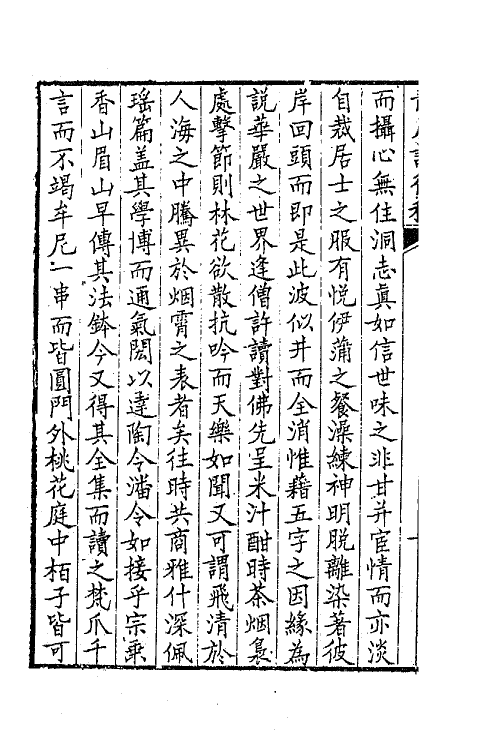 而攝心無住洞志眞如信世味之非甘并宦情而亦淡
自裁居士之服有悅伊蒲之餐澡練神明脫離染著彼
岸回頭而即是此波似井而全消惟藉五字之因緣為
說華嚴之世界逢僧許讀對佛先呈米汁酣時茶烟裊
處擊節則林花欲散抗吟而天樂如聞又可謂飛清於
人海之中騰異於烟霄之表者矣往時共商雅什深佩
瑤篇蓋其學博而通氣閎以達陶令潘令如接乎宗乘
香山眉山早傳其法鉢今又得其全集而讀之梵爪千
言而不竭牟尼一串而皆圓門外桃花庭中栢子皆可